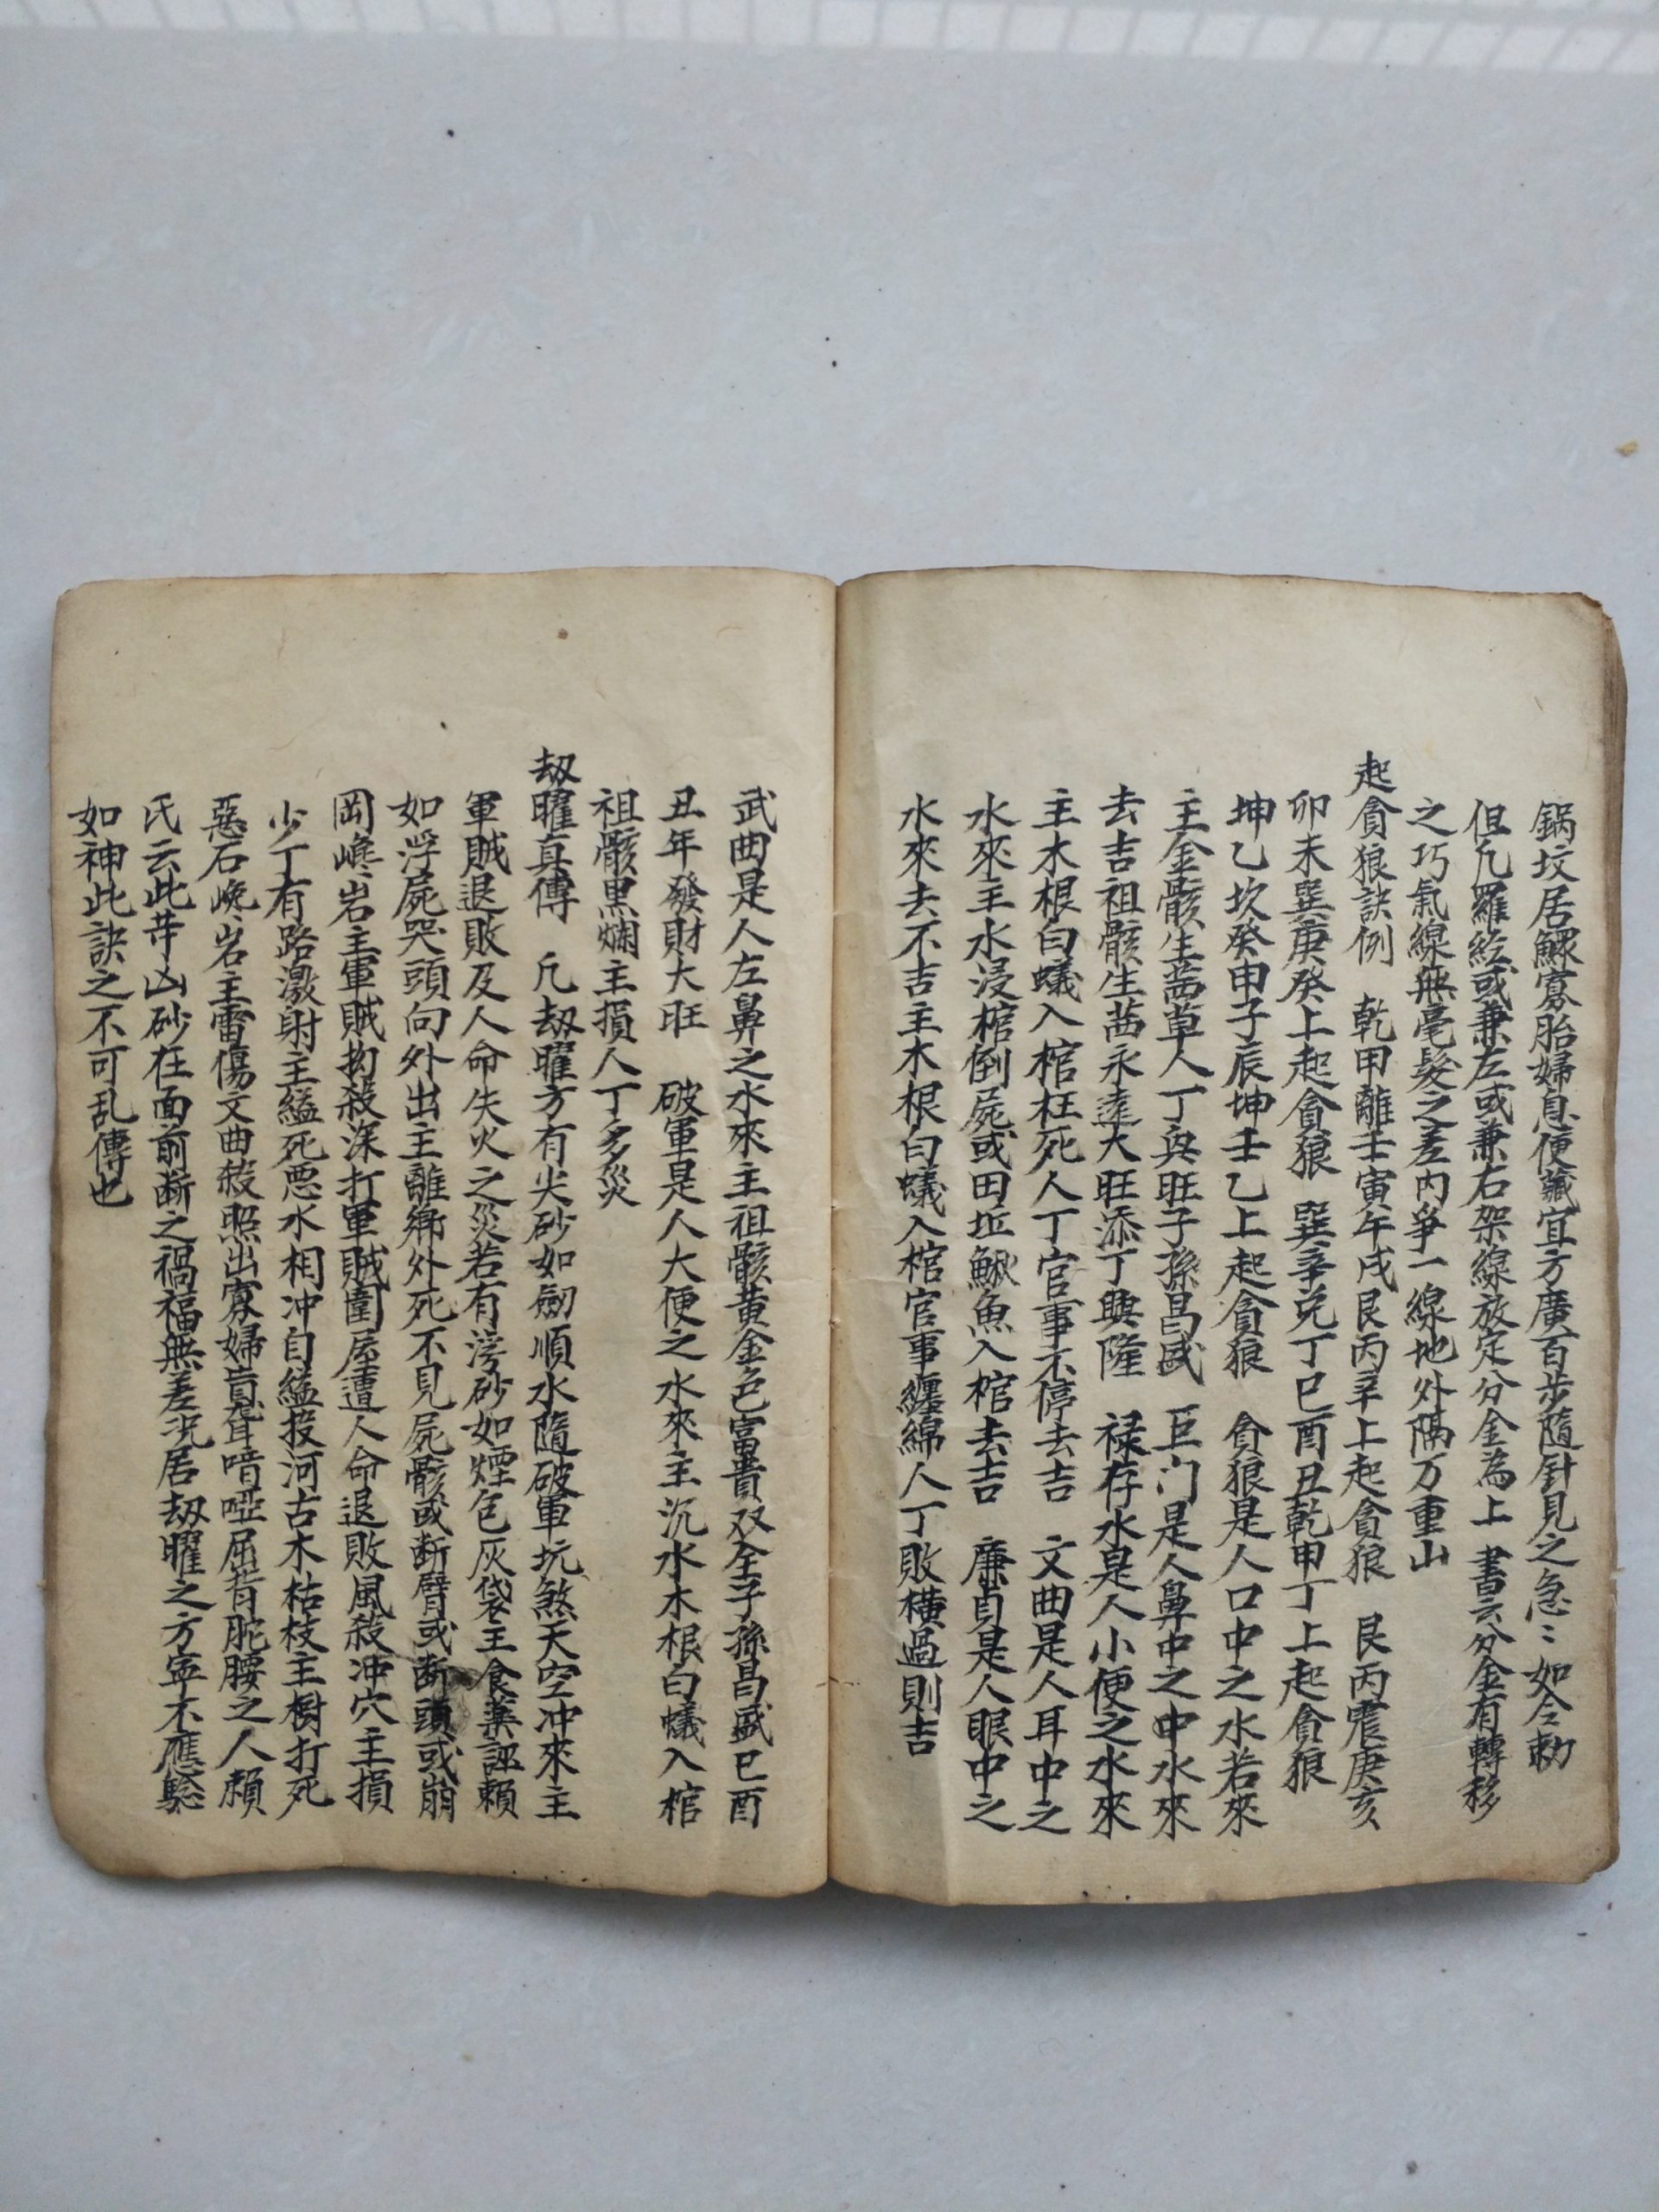 鍋坟居鰥寡胎婦息便藏宜方廣百步隨針見之急〻如令勅
但凡羅紘或兼左或兼右架線放定分金為上 書云分金有轉移
之巧氣線無毫髮之差內爭一線地外隔万重山
起貪狼訣例 乾甲離壬寅午戌艮丙辛上起貪狼 艮丙震庚亥
卯未巽庚癸上起貪狼 巽辛兌丁巳酉丑乾甲丁上起貪狼
坤乙坎癸申子辰坤壬乙上起貪狼 貪狼是人口中之水若來
主金骸生茜草人丁興旺子孫昌盛 巨门是人鼻中之中水來
去吉祖骸生茜永遠大旺添丁興隆 禄存水是人小便之水來
主木根白蟻入棺枉死人丁官事不停去吉 文曲是人耳中之
水來主水浸棺倒屍或田坵鰍魚入棺去吉 廉貞是人眼中之
水來去不吉主木根白蟻入棺官事纏綿人丁敗橫過則吉
武曲是人左鼻之水來主祖骸黃金色富貴双全子孫昌盛巳酉
丑年發財大旺 破軍是人大便之水來主沉水木根白蟻入棺
祖骸黑爛主損人丁多災
刼曜真傳 凡刼曜方有尖砂如劍順水隨破軍坑煞天空冲來主
軍賊退敗及人命失火之災若有涝砂如煙包灰袋主食藥誣賴
如浮屍哭頭向外出主離鄉外死不見屍骸或斷臂或断頭或崩
岡巉岩主軍賊拗殺深打軍賊圍屋遭人命退敗風殺冲穴主損
少丁有路激射主縊死悪水相冲自縊投河古木枯枝主樹打死
惡石巉岩主雷傷文曲殺照出寡婦盲聋喑啞屈背駝腰之人賴
氏云此莽凶砂在面前断之禍福無差況居刼曜之方寕不應驗
如神此訣之不可乱傳也